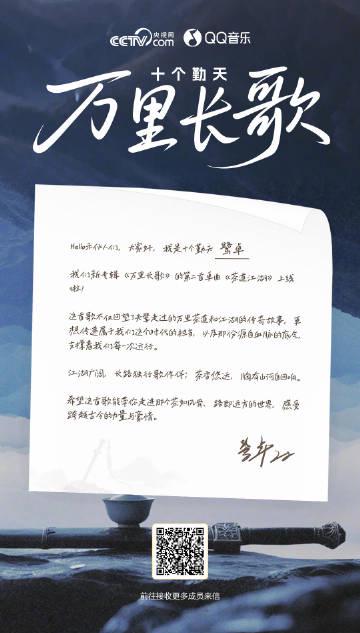 央视网
CCTV.com
QQ音乐
十个勤天
万里长歌
Hello禾伙人们，大家好，我是十个勤天 鹭卓
我们新专辑《万里长歌》的第二首单曲《茶道江湖》上线
啦！
这首歌不仅回望了
走过的万里茶道和江湖的传奇故事，更
想传递属于我们这个时代的
，以及那份源自血脉的底气，
支撑着我们每一次远行。
江湖广阔，长路独行歌作伴；茶香悠远，胸有山河自回响。
希望这首歌能带你走进那个茶知风骨、路即远方的世界，感受
跨越古今的力量与豪情。
前往接收更多成员来信